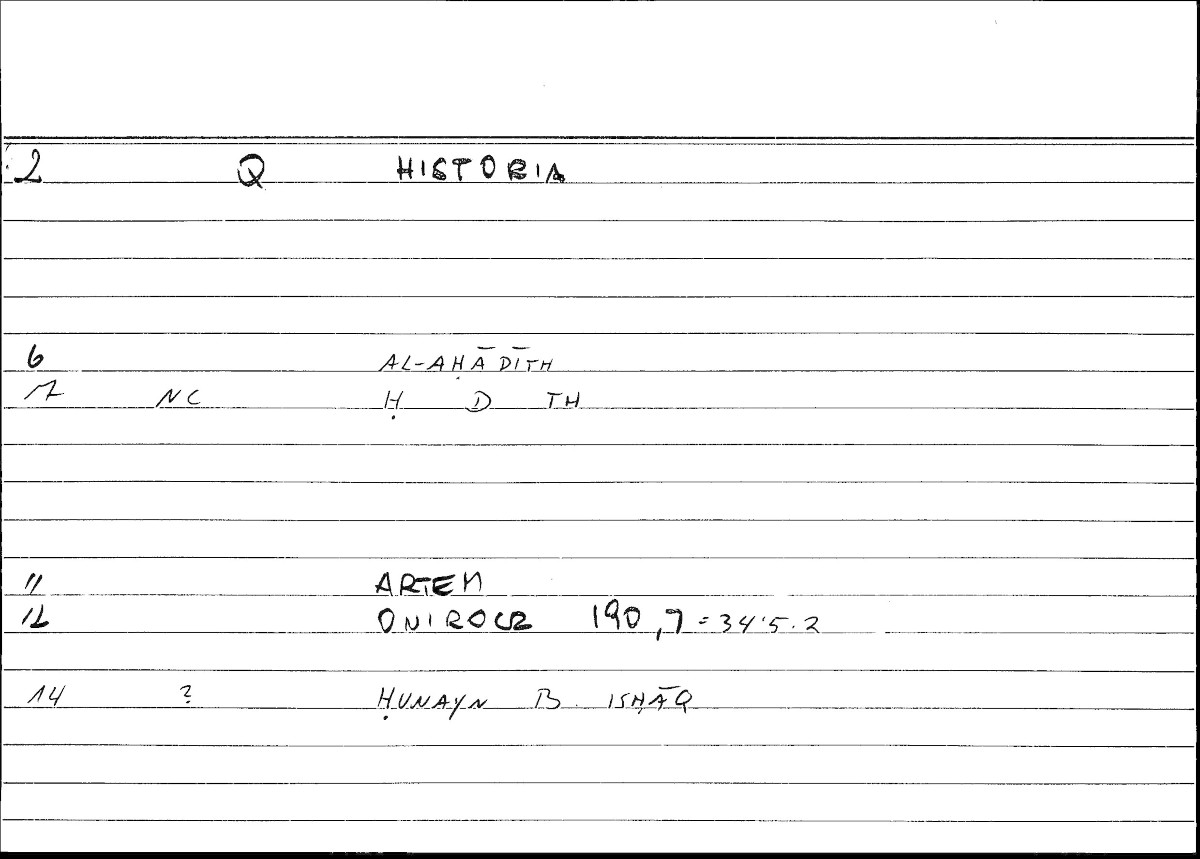 2 Q HISTORIA
6 AL-AḤĀDĪTH
7 NC Ḥ D TH
11 ARTEM
12 ONIROCR 190,7 = 34'5.2
14 ? ḤUNAYN B. ISḤĀQ